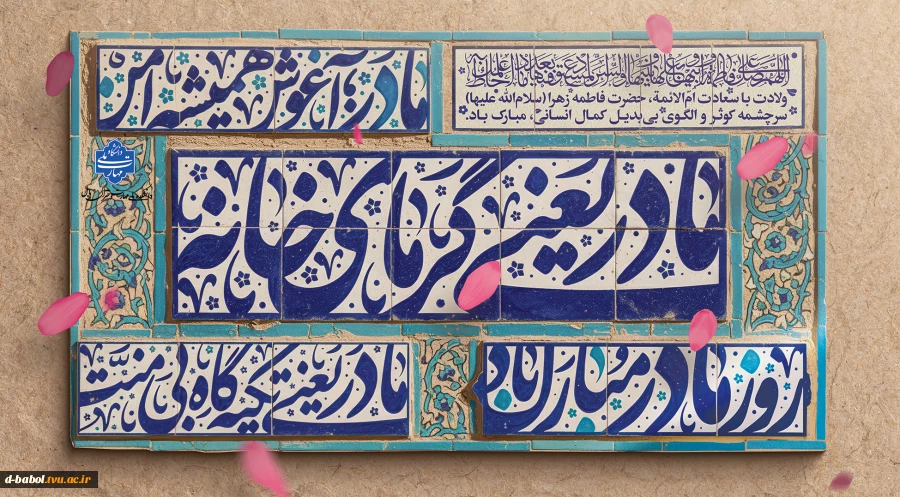 اللهم صل علی فاطمة و ابیها و بعلها و بنیها و السر المستودع فیها بعدد ما احاط به علمک
ولادت با سعادت ام‌الائمة، حضرت فاطمه زهرا (سلام‌الله علیها)
سرچشمه کوثر و الگوی بی‌بدیل کمال انسانی، مبارک باد.
مادر، آغوش همیشه امن
دانشگاه ملی مهارت
مادر یعنی گرمای خانه
روز مادر مبارک باد
مادر یعنی تکیه گاه بی منت
d-babol.tvu.ac.ir